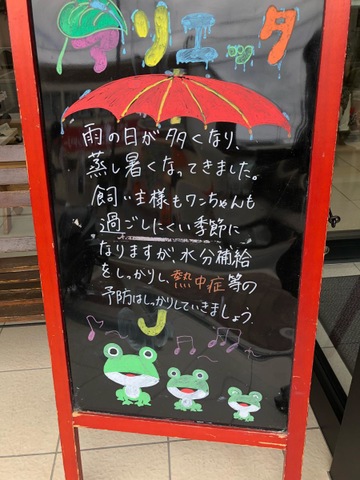 アリエッタ
雨の日が多くなり、
蒸し暑くなってきました。
飼い主様もワンちゃんも
過ごしにくい季節に
なりますが水分補給
をしっかりし、熱中症等の
予防はしっかりしていきましょう。